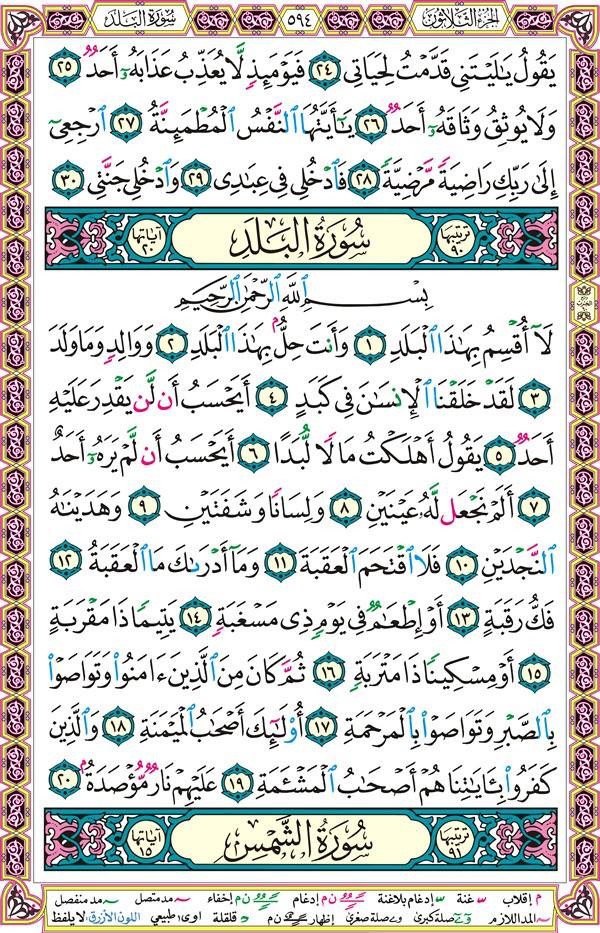 الجزء الثلاثون ٥٩٤ سورة البلد
يَقُولُ يَٰلَيۡتَنِي قَدَّمۡتُ لِحَيَاتِي ٢٤ فَيَوۡمَئِذٖ لَّا يُعَذِّبُ عَذَابَهُۥٓ أَحَدٞ ٢٥
وَلَا يُوثِقُ وَثَاقَهُۥٓ أَحَدٞ ٢٦ يَٰٓأَيَّتُهَا ٱلنَّفۡسُ ٱلۡمُطۡمَئِنَّةُ ٢٧ ٱرۡجِعِيٓ
إِلَىٰ رَبِّكِ رَاضِيَةٗ مَّرۡضِيَّةٗ ٢٨ فَٱدۡخُلِي فِي عِبَٰدِي ٢٩ وَٱدۡخُلِي جَنَّتِي ٣٠
ترتيبها ٩٠ سُورَةُ البَلَدِ آياتها ٢٠
بِسۡمِ ٱللَّهِ ٱلرَّحۡمَٰنِ ٱلرَّحِيمِ
لَآ أُقۡسِمُ بِهَٰذَا ٱلۡبَلَدِ ١ وَأَنتَ حِلُّۢ بِهَٰذَا ٱلۡبَلَدِ ٢ وَوَالِدٖ وَمَا وَلَدَ
٣ لَقَدۡ خَلَقۡنَا ٱلۡإِنسَٰنَ فِي كَبَدٍ ٤ أَيَحۡسَبُ أَن لَّن يَقۡدِرَ عَلَيۡهِ
أَحَدٞ ٥ يَقُولُ أَهۡلَكۡتُ مَالٗا لُّبَدًا ٦ أَيَحۡسَبُ أَن لَّمۡ يَرَهُۥٓ أَحَدٌ
٧ أَلَمۡ نَجۡعَل لَّهُۥ عَيۡنَيۡنِ ٨ وَلِسَانٗا وَشَفَتَيۡنِ ٩ وَهَدَيۡنَٰهُ
ٱلنَّجۡدَيۡنِ ١٠ فَلَا ٱقۡتَحَمَ ٱلۡعَقَبَةَ ١١ وَمَآ أَدۡرَىٰكَ مَا ٱلۡعَقَبَةُ ١٢
فَكُّ رَقَبَةٍ ١٣ أَوۡ إِطۡعَٰمٞ فِي يَوۡمٖ ذِي مَسۡغَبَةٖ ١٤ يَتِيمٗا ذَا مَقۡرَبَةٍ
١٥ أَوۡ مِسۡكِينٗا ذَا مَتۡرَبَةٖ ١٦ ثُمَّ كَانَ مِنَ ٱلَّذِينَ ءَامَنُواْ وَتَوَاصَوۡاْ
بِٱلصَّبۡرِ وَتَوَاصَوۡاْ بِٱلۡمَرۡحَمَةِ ١٧ أُوْلَٰٓئِكَ أَصۡحَٰبُ ٱلۡمَيۡمَنَةِ ١٨ وَٱلَّذِينَ
كَفَرُواْ بِـَٔايَٰتِنَا هُمۡ أَصۡحَٰبُ ٱلۡمَشۡـَٔمَةِ ١٩ عَلَيۡهِمۡ نَارٞ مُّؤۡصَدَةُۢ ٢٠
ترتيبها ٩١ سُورَةُ الشَّمْسِ آياتها ١٥
م إقلاب غنة إدغام بلاغنة ن م إدغام إخفاء مد متصل مد منفصل
المد اللازم صلة كبرى صلة صغرى إظهار ن م قلقلة اوى طبيعي اللون الأزرق لا يلفظ